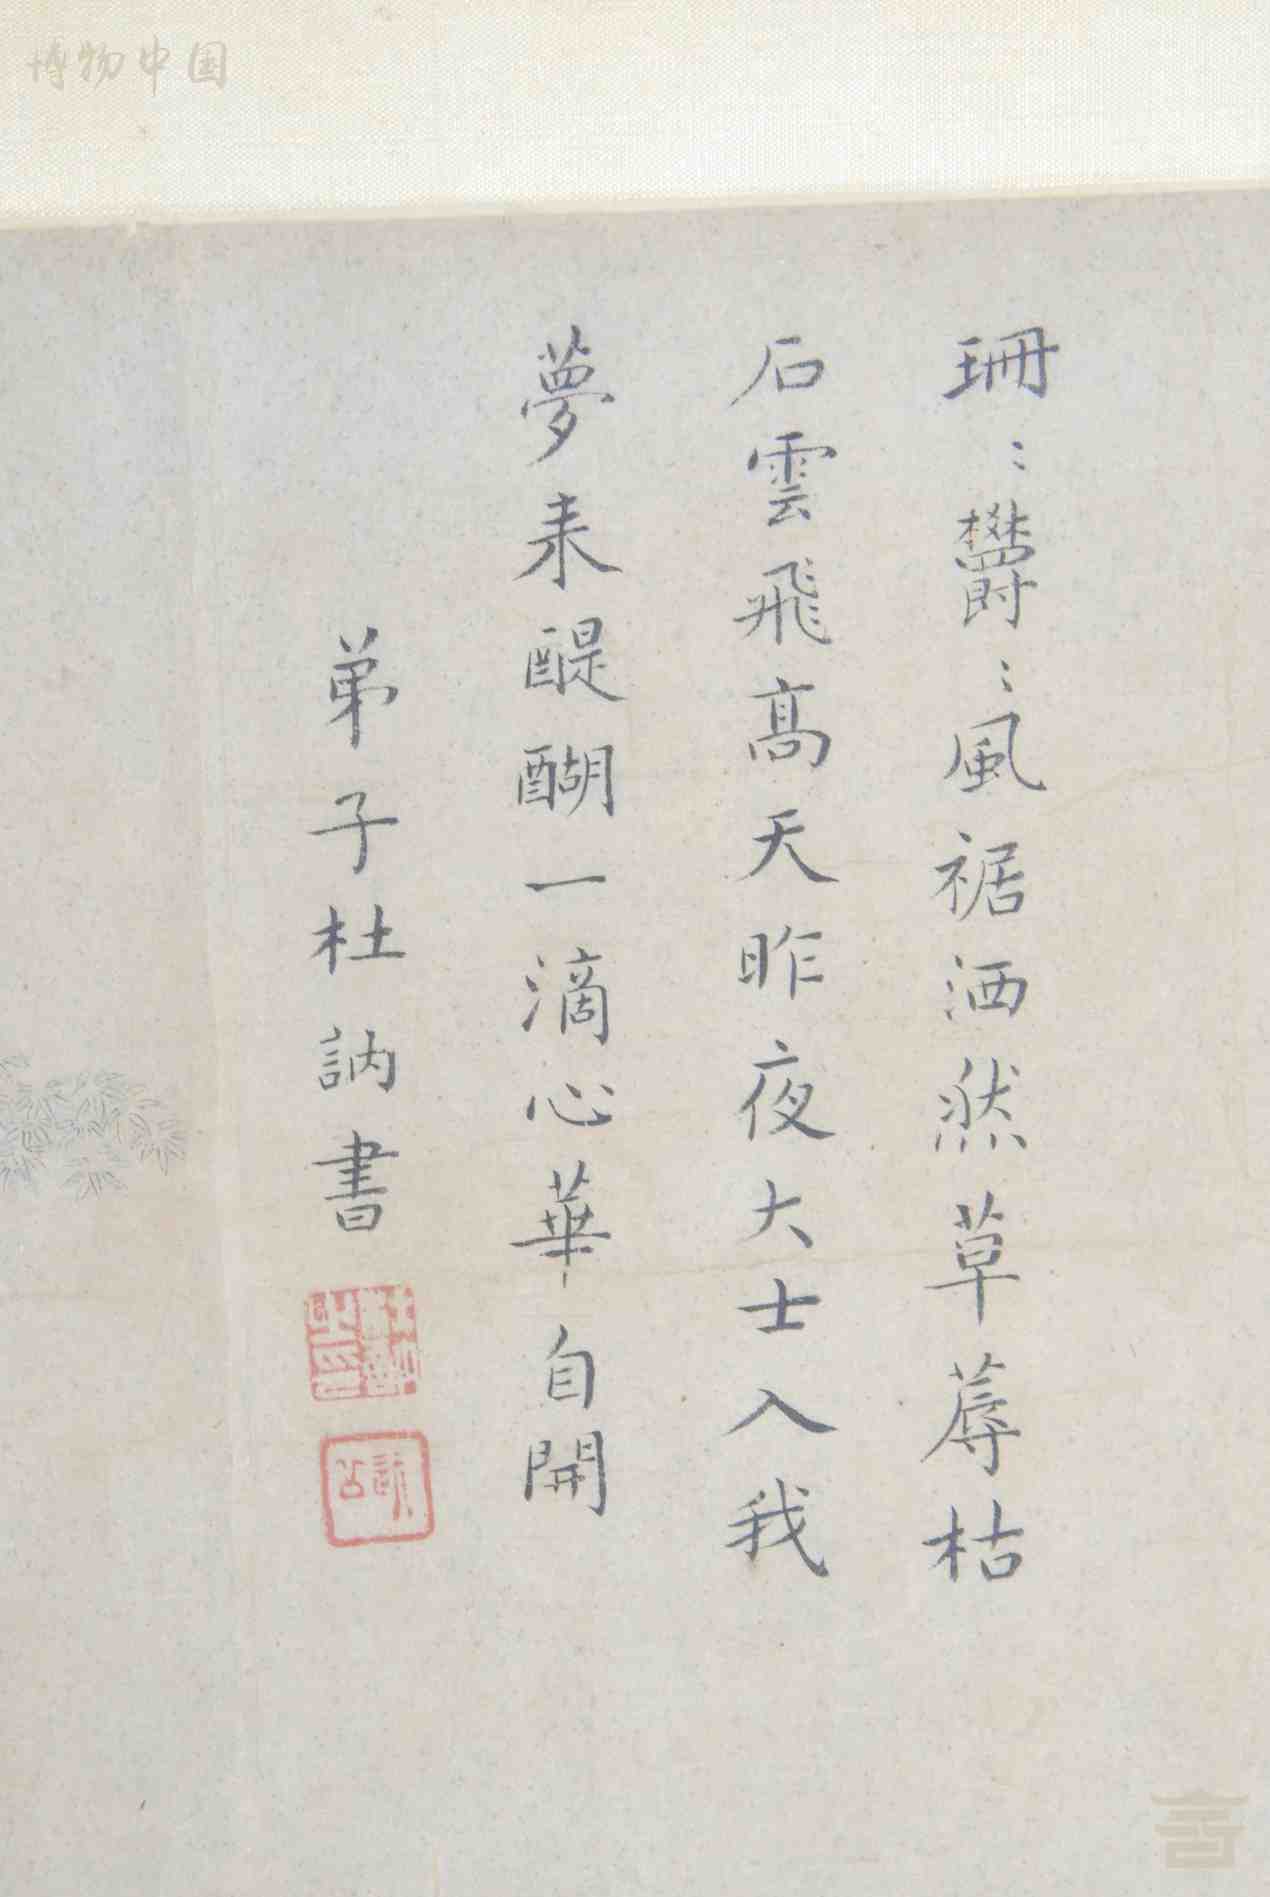 珊〻欝〻風裾洒然草蓐枯
石雲飛高天昨夜大士入我
夢来醍醐一滴心華自開
弟子杜訥書
博物中国